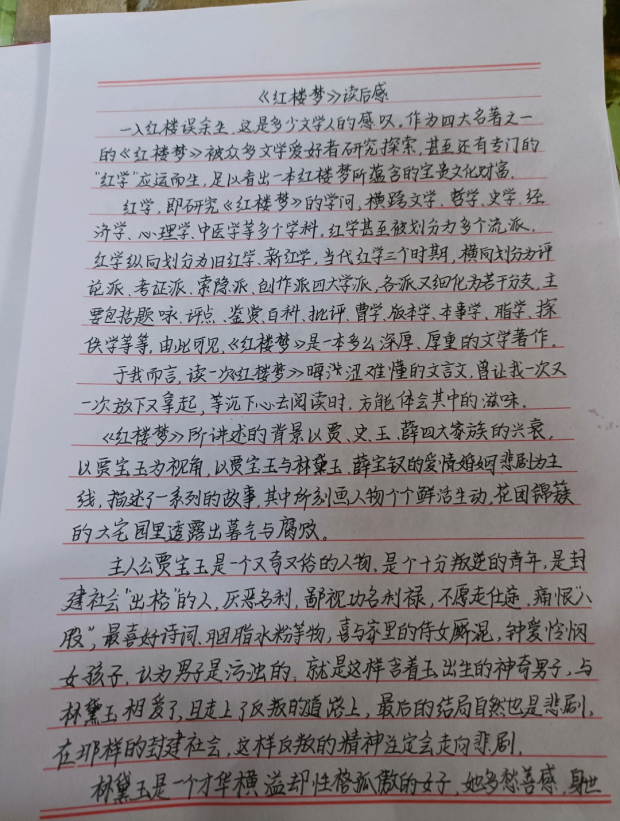 《红楼梦》读后感
一入红楼误余生,这是多少文学人的感叹。作为四大名著之一
的《红楼梦》被众多文学爱好者研究探索,甚至还有专门的
"红学"应运而生,足以看出一本红楼梦所蕴含的宝贵文化财富。
红学,即研究《红楼梦》的学问,横跨文学、哲学、史学、经
济学、心理学、中医学等多个学科。红学甚至被划分为多个流派。
红学纵向划分为旧红学、新红学,当代红学三个时期,横向划分为评
论派、考证派、索隐派、创作派四大学派,各派又细化为若干分支,主
要包括题咏、评点、鉴赏、百科、批评、曹学、版本学、本事学、脂学、探
佚学等等,由此可见,《红楼梦》是一本多么深厚、厚重的文学著作。
于我而言,读一次《红楼梦》晦涩难懂的文言文,曾让我一次又
一次放下又拿起,等沉下心去阅读时,方能体会其中的滋味。
《红楼梦》所讲述的背景以贾、史、王、薛四大家族的兴衰,
以贾宝玉为视角,以贾宝玉与林黛玉、薛宝钗的爱情婚姻悲剧为主
线,描述了一系列的故事,其中所刻画人物个个鲜活生动,花团锦簇
的大宅园里透露出暮气与腐败。
主人公贾宝玉是一个又奇又俗的人物,是个十分叛逆的青年,是封
建社会"出格"的人,厌恶名利,鄙视功名利禄,不愿走仕途,痛恨"八
股",最喜好诗词、胭脂水粉等物,喜与家里的侍女厮混,钟爱怜悯
女孩子,认为男子是污浊的,就是这样含着玉出生的神奇男子,与
林黛玉相爱了,且走上了反叛的道路上,最后的结局自然也是悲剧,
在那样的封建社会,这样反叛的精神注定会走向悲剧。
林黛玉是一个才华横溢却性格孤傲的女子,她多愁善感,身世